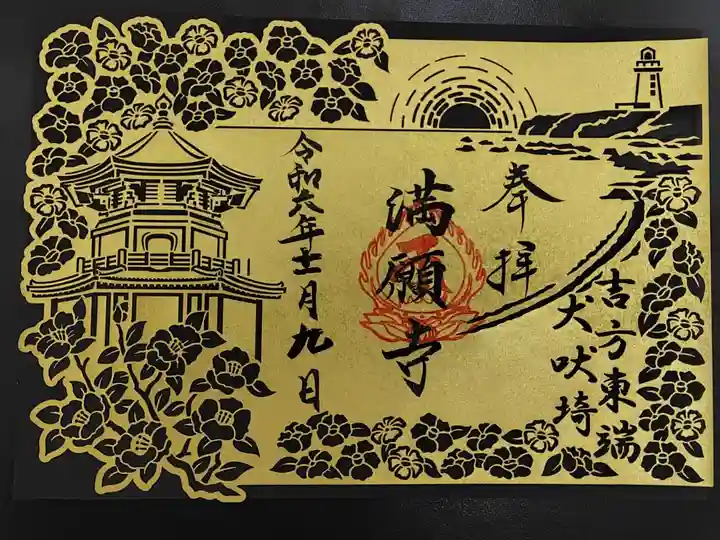 吉方東端
犬吠埼
奉拝
満願寺
令和六年十二月九日